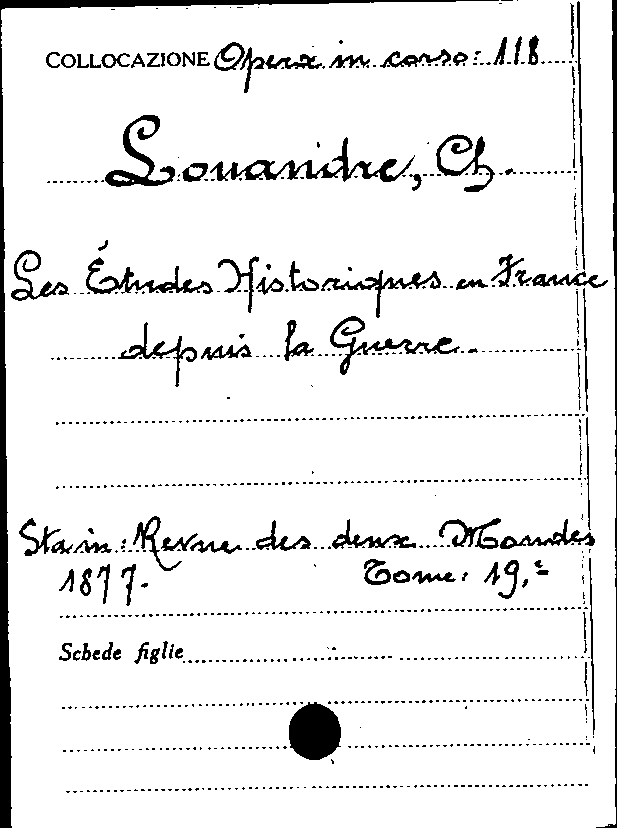 COLLOCAZIONE Opera in corso: 118
Louandre, Ch.
Les Études Historiques en France
depuis la Guerre.
Sta in: Revue des deux Mondes
1877. Tome: 19,=
Schede figlie